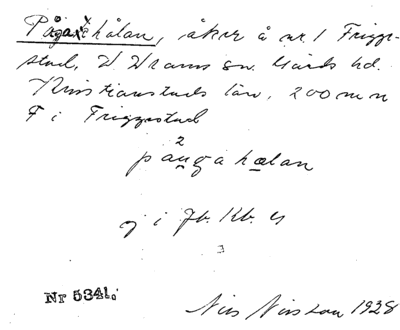 Pågahålan, åker å nr. 1 Frigge-
stad, V Vrams sn. Gärds hd.
Kristianstads län, 200 m n
F i Friggestad
2
paugahalan
ej i Jb. Kb. el
3
Nr 5341.
Nils Nilsson 1928